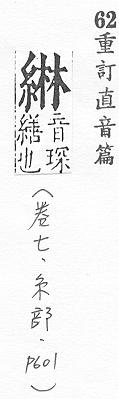 62重訂直音篇
綝
音琛
繕也
(卷七、糸部、p601)